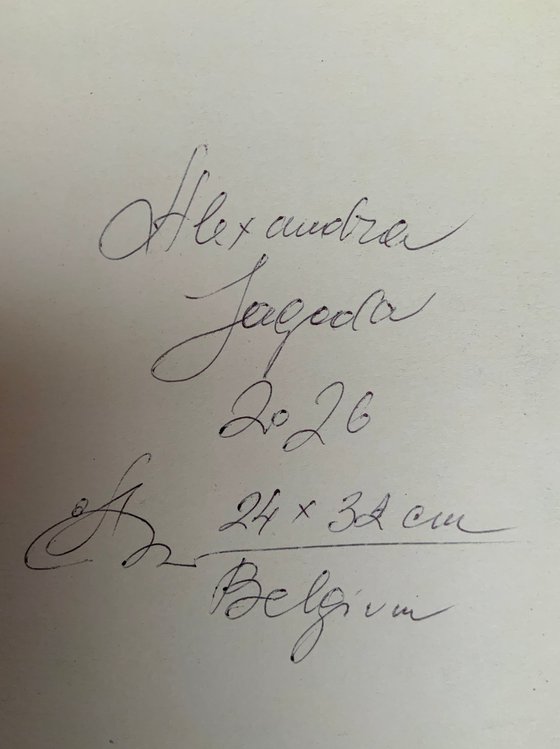 Alexandra
Jagoda
2026
24 x 32 cm
Belgium